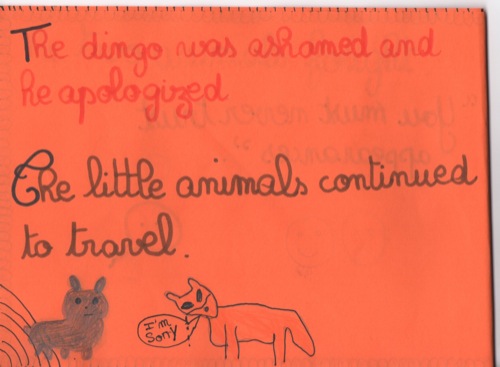 The dingo was ashamed and
he apologized
The little animals continued
to travel.
I'm
Sorry